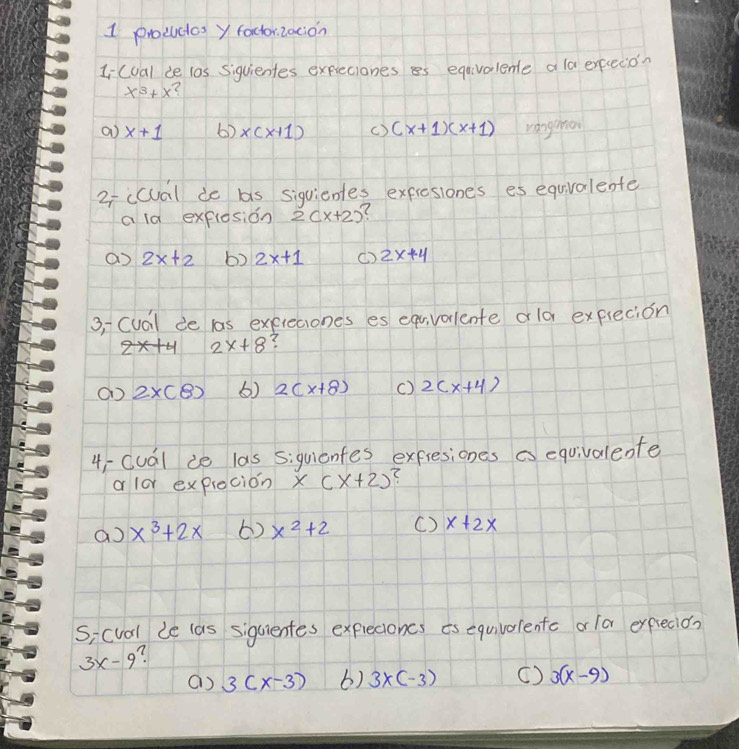 1 productos y factorización
1,- Cual de las siguientes expreciones es equivalente a la expreción
x³+x?
a) x+1 b) x(x+1) c) (x+1)(x+1)
2,- ¿Cuál de las siguientes expresiones es equivalente
a la expresión 2(x+2)?
a) 2x+2 b) 2x+1 c) 2x+4
3,- Cuál de las expreciones es equivalente a la expreción
2x+4 2x+8?
a) 2x(8) b) 2(x+8) c) 2(x+4)
4,- Cuál de las siguientes expresiones es equivalente
a la expreción x (x+2)?
a) x³+2x b) x²+2 c) x+2x
5,- Cual de las siguientes expreciones es equivalente a la expreción
3x-9?
a) 3(x-3) b) 3x(-3) c) 3(x-9)